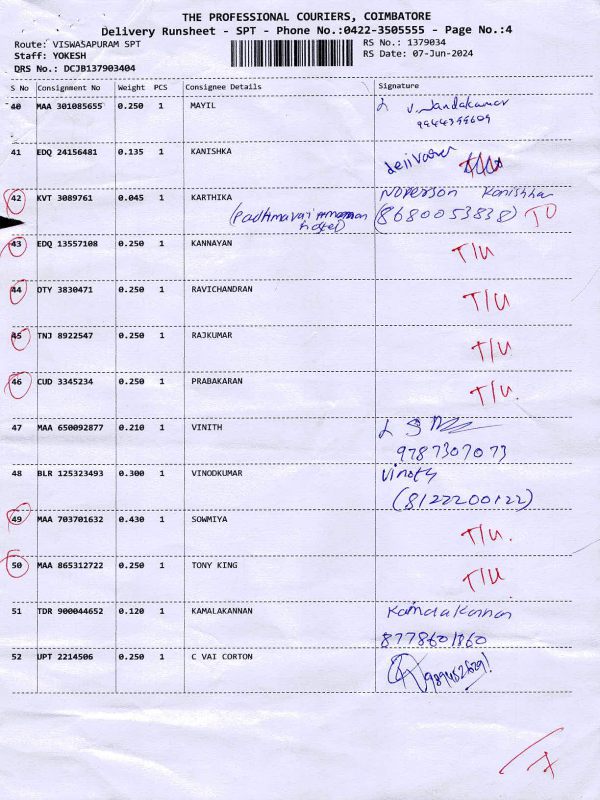 THE PROFESSIONAL COURIERS, COIMBATORE
Delivery Runsheet - SPT - Phone No.:0422-3505555 - Page No.:4
Route: VISWASAPURAM SPT RS No.: 1379034
Staff: YOKESH RS Date: 07-Jun-2024
DRS No.: DCJB137903404
S No Consignment No Weight PCS Consignee Details Signature
40 MAA 301085655 0.250 1 MAYIL
9944399609
41 EDQ 24156481 0.135 1 KANISHKA
42 KVT 3089761 0.045 1 KARTHIKA NOPERSON
hotel) (8680053838)
43 EDQ 13557108 0.250 1 KANNAYAN T/U
44 OTY 3830471 0.250 1 RAVICHANDRAN T/U
45 TNJ 8922547 0.250 1 RAJKUMAR T/U
46 CUD 3345234 0.250 1 PRABAKARAN T/U.
47 MAA 650092877 0.210 1 VINITH
9787307073
48 BLR 125323493 0.300 1 VINODKUMAR
(8122200122)
49 MAA 703701632 0.430 1 SOWMIYA T/U.
50 MAA 865312722 0.250 1 TONY KING T/U
51 TDR 900044652 0.120 1 KAMALAKANNAN Kamalakannan
8778601860
52 UPT 2214506 0.250 1 C VAI CORTON